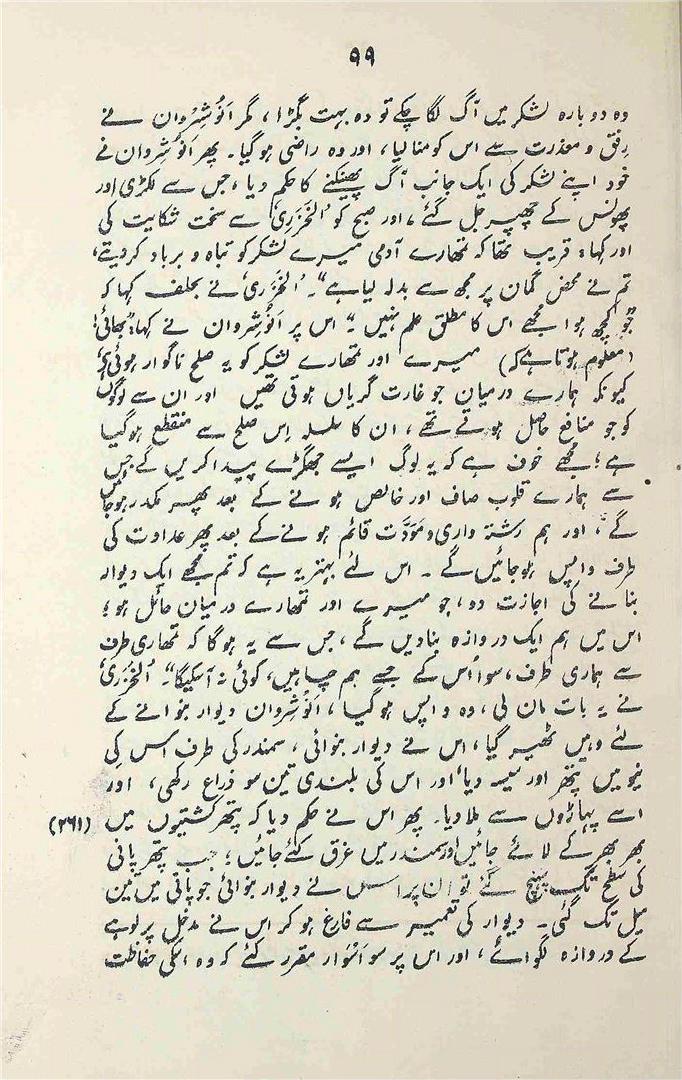 ۹۹
وہ دوبارہ لشکر میں آگ لگا چکے تو وہ بہت بگڑا ، مگر اَنُوشِرْوان نے
رِفق و معذرت سے اس کو منا لیا ، اور وہ راضی ہو گیا ۔ پھر اَنُوشِرْوان نے
خود اپنے لشکر کی ایک جانب آگ پھینکنے کا حکم دیا ، جس سے لکڑی اور
پھونس کے چھپر جل گئے ، اور صبح کو الخَزَرِی سے سخت شکایت کی
اور کہا : قریب تھا کہ تمھارے آدمی میرے لشکر کو تباہ و برباد کر دیتے ،
تم نے محض گمان پر مجھ سے بدلہ لیا ہے " ۔ الخَزَرِی نے بحلف کہا کہ
" جو کچھ ہوا مجھے اس کا مطلق علم نہیں " ۔ اس پر اَنُوشِرْوان نے کہا : " بھائی !
( معلوم ہوتا ہے کہ ) میرے اور تمھارے لشکر کو یہ صلح ناگوار ہوئی ،
کیونکہ ہمارے درمیان جو غارت گریاں ہوتی تھیں اور ان سے لوگوں
کو جو منافع حاصل ہوتے تھے ، ان کا سلسلہ اِس صلح سے منقطع ہو گیا
ہے ؛ مجھے خوف ہے کہ یہ لوگ ایسے جھگڑے پیدا کریں گے جس
سے ہمارے قلوب صاف اور خالص ہونے کے بعد پھر مکدر ہو جائیں
گے ، اور ہم رشتہ داری و مَوَدَّت قائم ہونے کے بعد پھر عداوت کی
طرف واپس ہو جائیں گے ۔ اس لئے بہتر یہ ہے کہ تم مجھے ایک دیوار
بنانے کی اجازت دو ، جو میرے اور تمھارے درمیان حائل ہو ؛
اس میں ہم ایک دروازہ بنا دیں گے ، جس سے یہ ہو گا کہ تمھاری طرف
سے ہماری طرف ، سوا اُس کے جسے ہم چاہیں ، کوئی نہ آ سکیگا " ۔ الخَزَرِی
نے یہ بات مان لی ، وہ واپس ہو گیا ، اَنُوشِرْوان دیوار بنوانے کے
لئے وہیں ٹھیر گیا ، اس نے دیوار بنوائی ، سمندر کی طرف اس کی
نیو میں پتھر اور سیسہ دیا ، اور اس کی بلندی تین سو ذراع رکھی ، اور
اسے پہاڑوں سے ملا دیا ۔ پھر اس نے حکم دیا کہ پتھر کشتیوں میں (۲۶۱)
بھر بھر کے لائے جائیں اور سمندر میں غرق کئے جائیں ؛ جب پتھر پانی
کی سطح تک پہنچ گئے تو ان پر اس نے دیوار بنوائی جو پانی میں تین
میل تک گئی ۔ دیوار کی تعمیر سے فارغ ہو کر اس نے مدخل پر لوہے
کے دروازہ لگوائے ، اور اس پر سو اَسْوار مقرر کئے کہ وہ اسکی حفاظت